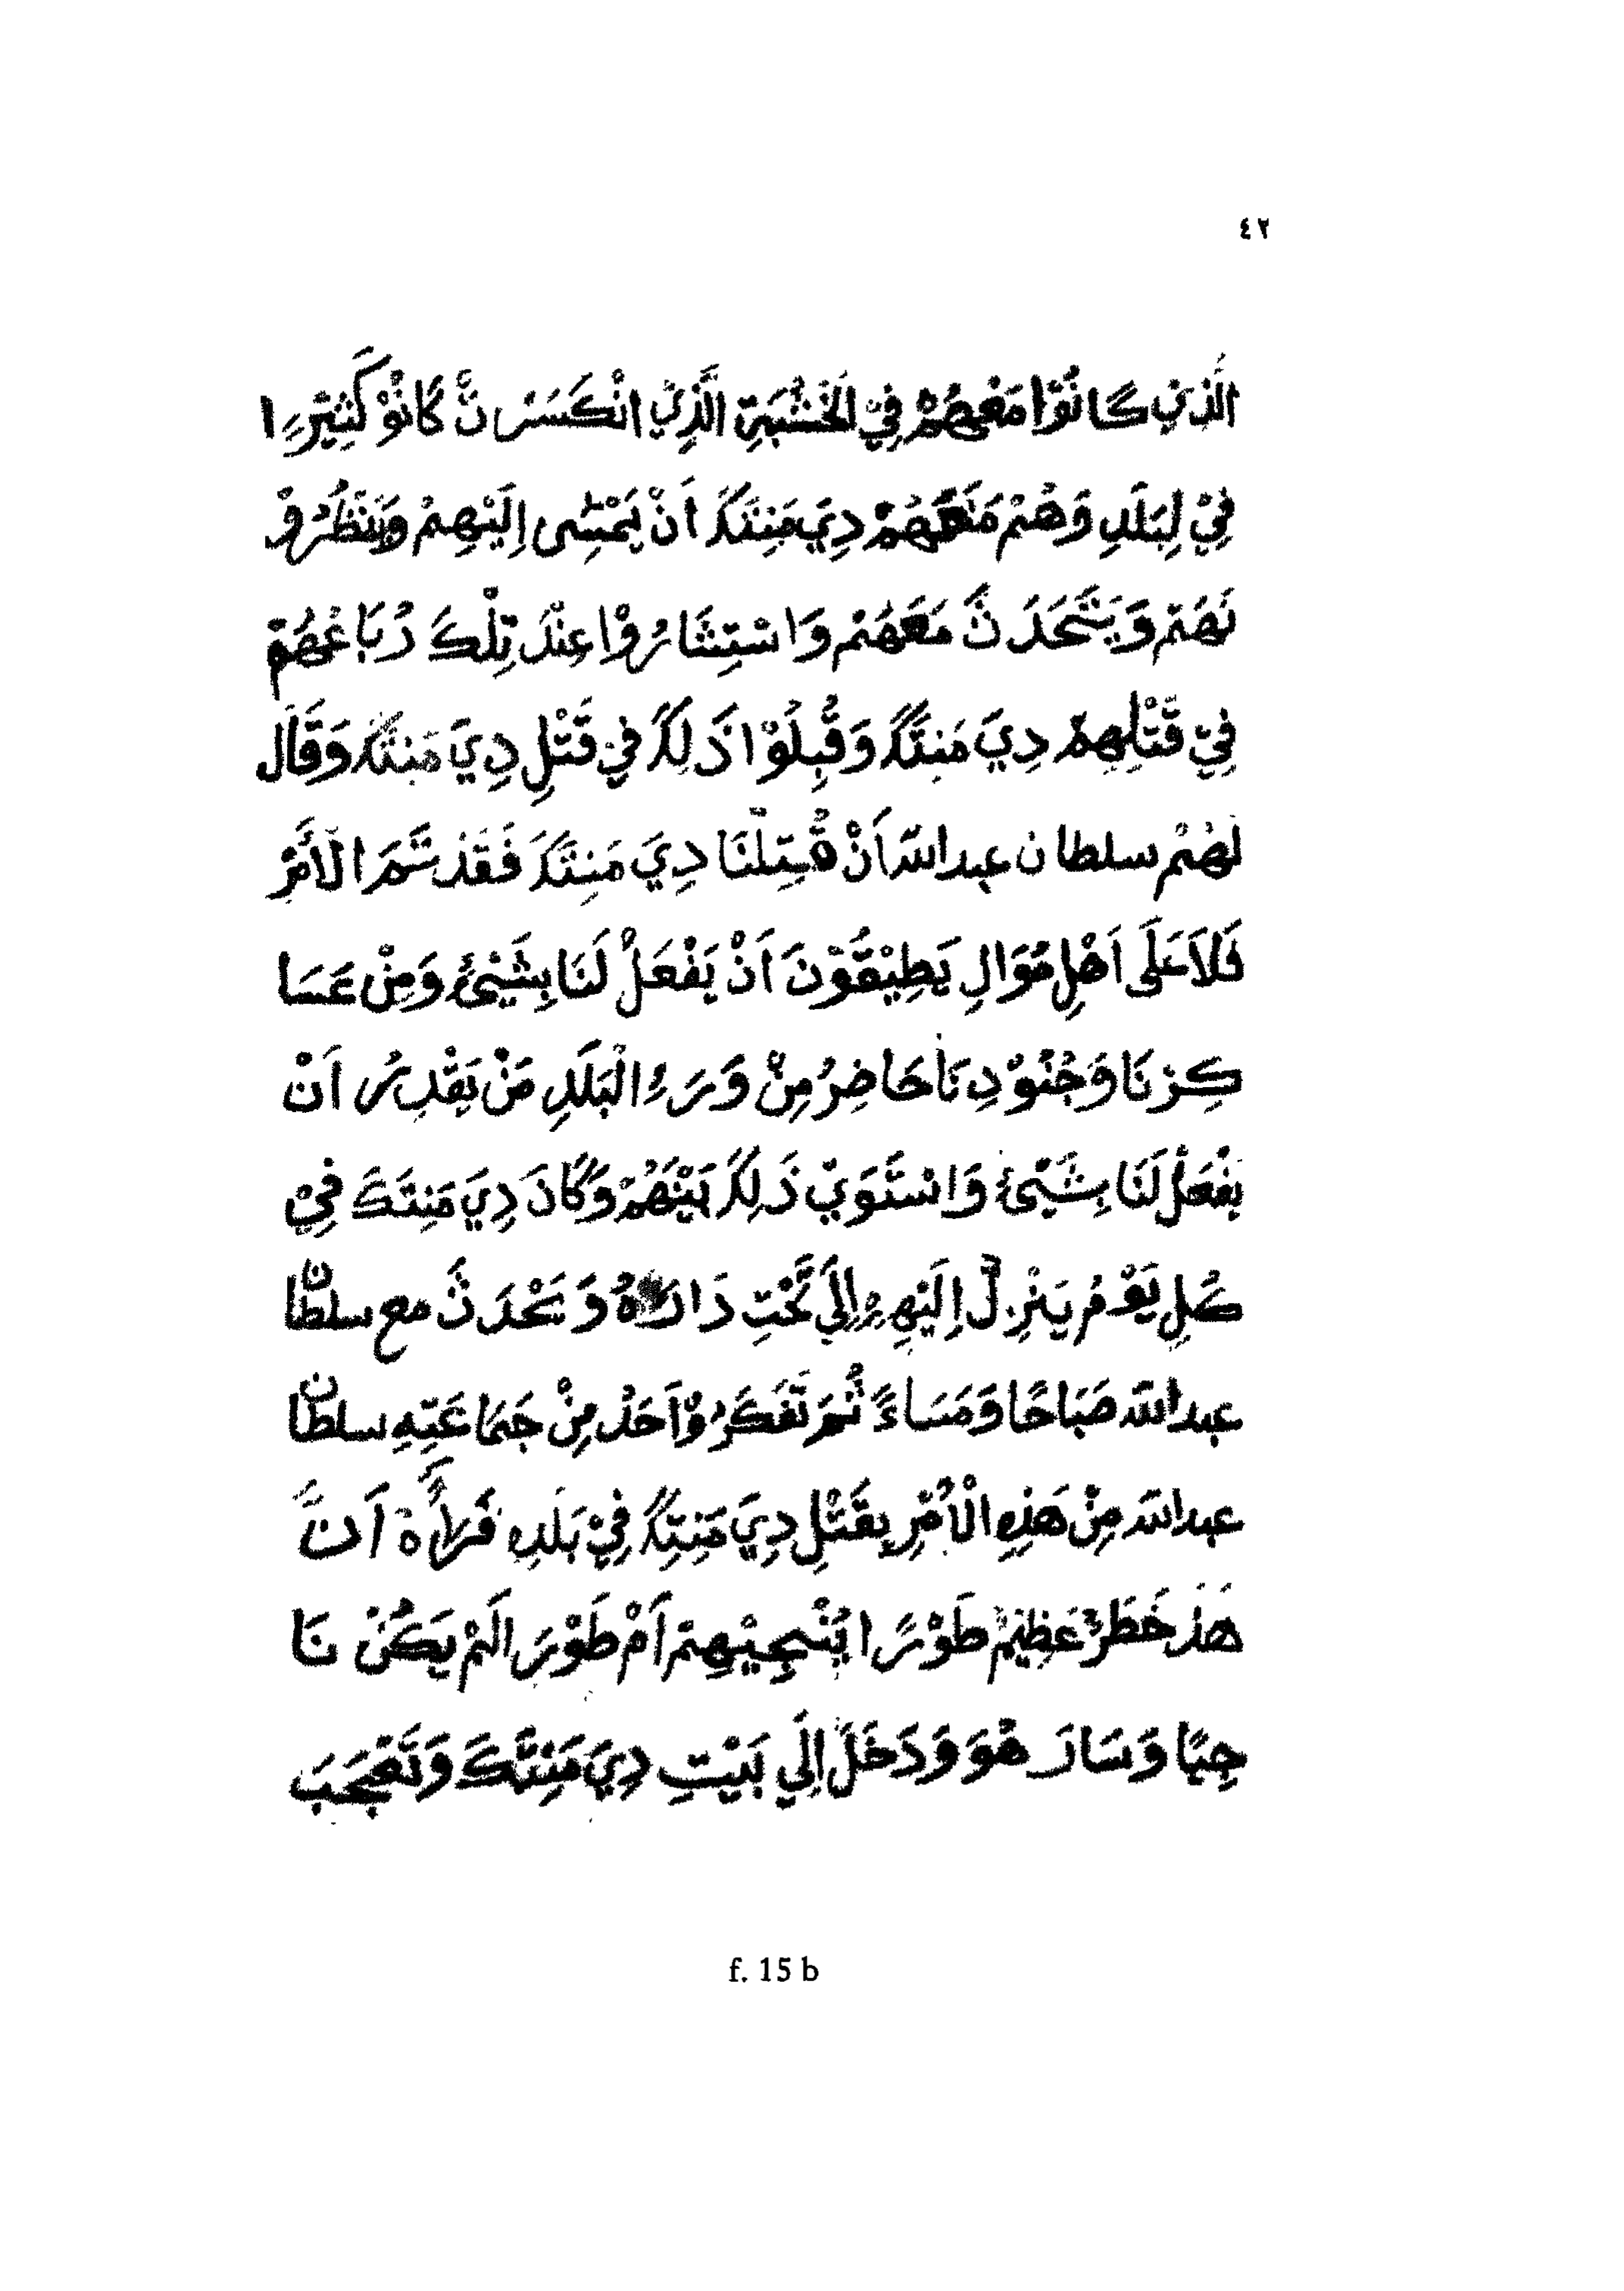 ٤٢
الَّذِيْ كَانُوْا مَعَهُمْ فِيْ الْخَشَبَةِ الَّذِيْ انْكَسَرَنَّ كَانُوْ كَثِيْرٍا
فِيْ لِبَلَدِ وَهُمْ مَنَعَهُمْ دِيَ مَنِتَكَ اَنْ يَمْشِى اِلَيْهِمْ وَيَنْظُرُوْ
نَهُمْ وَيَتَّحَدَنَّ مَعَهُمْ وَاسْتِشَارُوْا عِنْدَ تِلْكَ رُبَاعُهُمْ
فِيْ قَتْلِهِمْ دِيَ مَنِتَّكَ وَقُبِلُوْا ذَلِكَ فِيْ قَتْلِ دِيَ مَنِتَّكَ وَقَالَ
لَهُمْ سلطان عبدالله اَنْ قُتِلْنَا دِيَ مَنِتَّكَ فَقَدْ تَّمَرَا الْأَمْرُ
فَلاَ عَلَى اَهْلِ مُوَالِ يَطِيْقُوْنَ اَنْ يَفْعَلْ لَنَا بِشَيْئٍ وَمِنْ عَسَا
كِرْنَا وَجُنُوْدِنَا حَاضِرُ مِنْ وَرَءِ الْبَلَدِ مَنْ يَقْدِرُ اَنْ
يَفْعَلْ لَنَا بِشَيْئٍ وَاسْتَّوَيْ ذَلِكَ بَيْنَهُمْ وَكَانَ دِيَ مَنِتَكَ فِيْ
كُلِ يَوْمُ يَنْزِلْ اِلَيْهِمْ اِلَيَ تَّحْتِ دَارَهُ وَيَحْدَثَ مع سلطان
عبدالله صَبَاحًا وَمَسَاءً ثُمَّ تَفَكَّرُ وْاَحَدْ مِنْ جَمَاعَتِهِ سلطان
عبدالله مِنْ هَذِهِ الْأَمْرِ بِقَتْلِ دِيَ مَنِتِكَ فِيْ بَلَدِهِ فَرَاَهُ اَنَّ
هَذ خَطَرٌ عَظِيْمٌ طَوْرًا يُنْجِيْهِمْ اَمْ طَوْرَ الَمْ يَكُنْ نَا
جِيًا وَسَارَ هُوَ وَدَخَلَ اِلَي بَيْتِ دِيَ مَنِتَّكَ وَتَعْجَبَ
f. 15 b